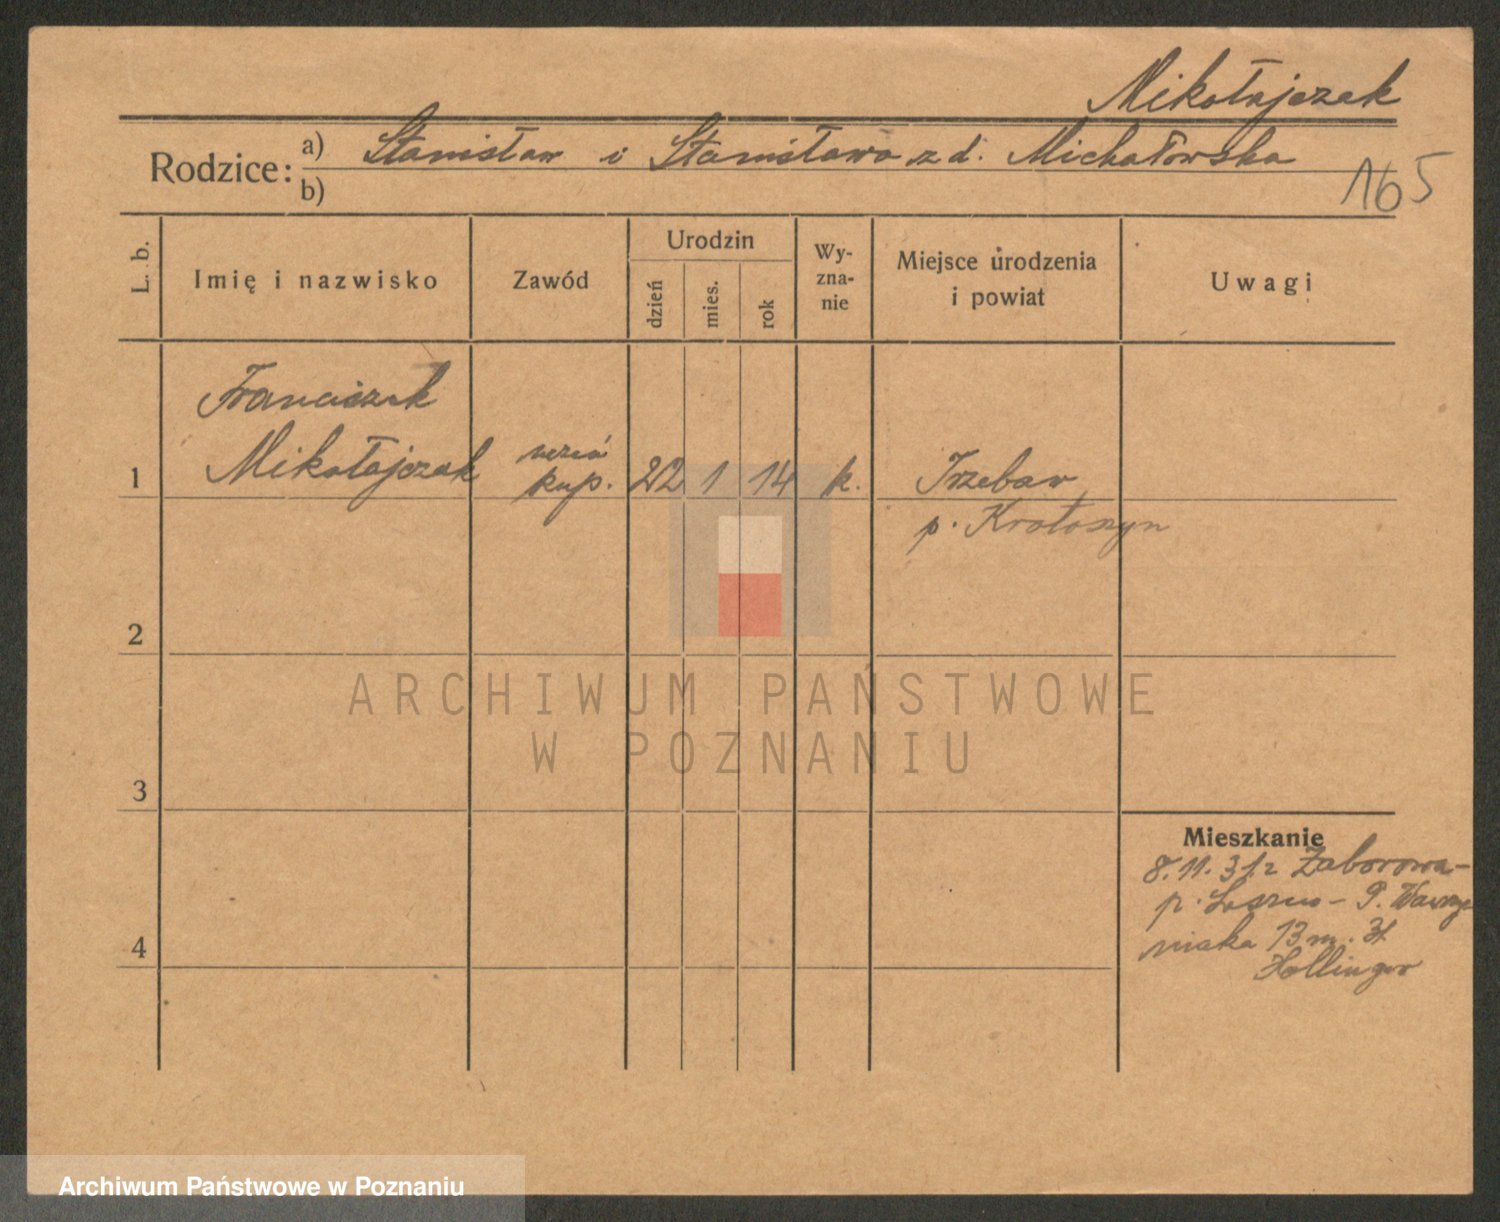 Mikołajczak
Rodzice: a) Stanisław i Stanisława z d. Michałowska
b)
165
L. b.
Imię i nazwisko
Zawód
Urodzin
dzień
mies.
rok
Wy-
zna-
nie
Miejsce urodzenia
i powiat
Uwagi
Franciszek
1 Mikołajczak
kup.
22 1 14 k.
Trzebaw
p. Krotoszyn
2
ARCHIWUM PAŃSTWOWE
W POZNANIU
3
Mieszkanie
8.11.31 z Zaborowa-
p. Leszno - P. Wawrzy
niaka 13 m.
4
Archiwum Państwowe w Poznaniu